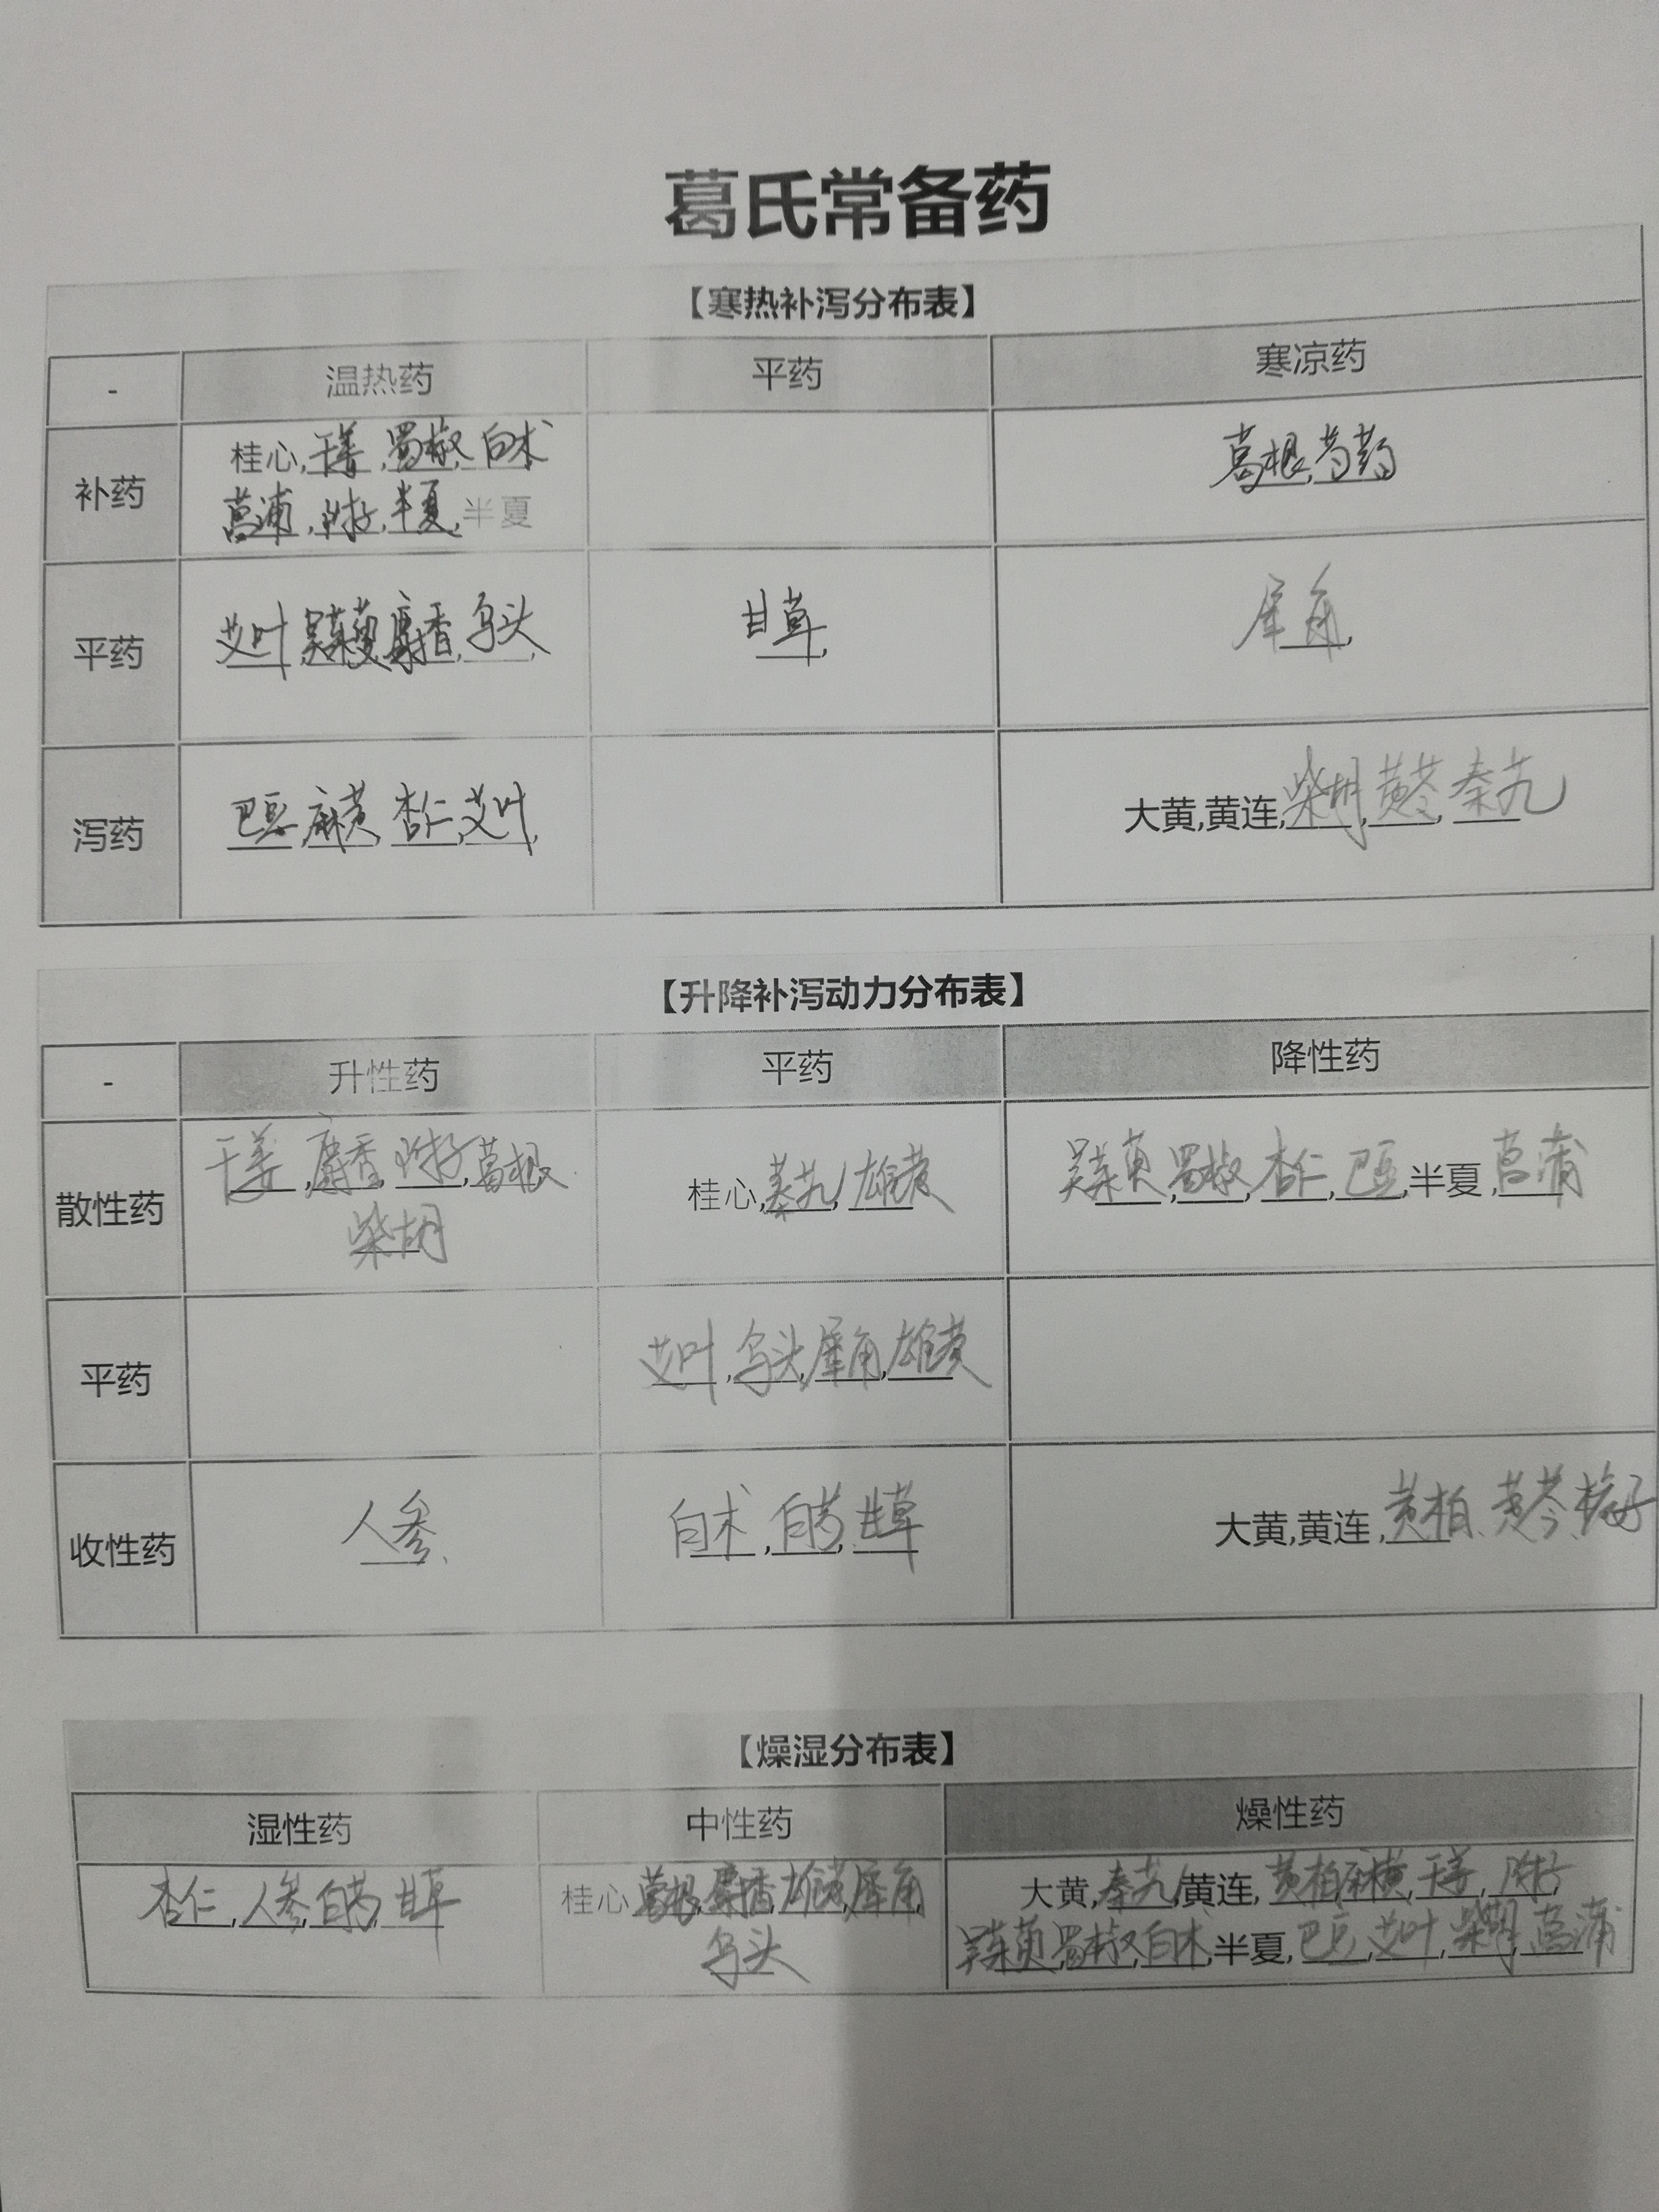 葛氏常备药
【寒热补泻分布表】
- 温热药 平药 寒凉药
补药
桂心,干姜,蜀椒,白术
菖蒲,附子,半夏,半夏
葛根,芍药
平药
艾叶,吴茱萸,麝香,乌头,
甘草,
犀角,
泻药
巴豆,麻黄,杏仁,艾叶,
大黄,黄连,柴胡,黄芩,秦艽
【升降补泻动力分布表】
- 升性药 平药 降性药
散性药
干姜,麝香,附子,葛根
柴胡
桂心,秦艽,雄黄
吴茱萸,蜀椒,杏仁,巴豆,半夏,菖蒲
平药
艾叶,乌头,犀角,雄黄
收性药
人参、
白术,白芍,甘草
大黄,黄连,黄柏、黄芩、栀子
【燥湿分布表】
湿性药 中性药 燥性药
杏仁,人参,白芍,甘草
桂心,葛根,麝香,雄黄,犀角,
乌头
大黄,秦艽,黄连,黄柏,麻黄,干姜,附子,
吴茱萸,蜀椒,白术,半夏,巴豆,艾叶,柴胡,菖蒲